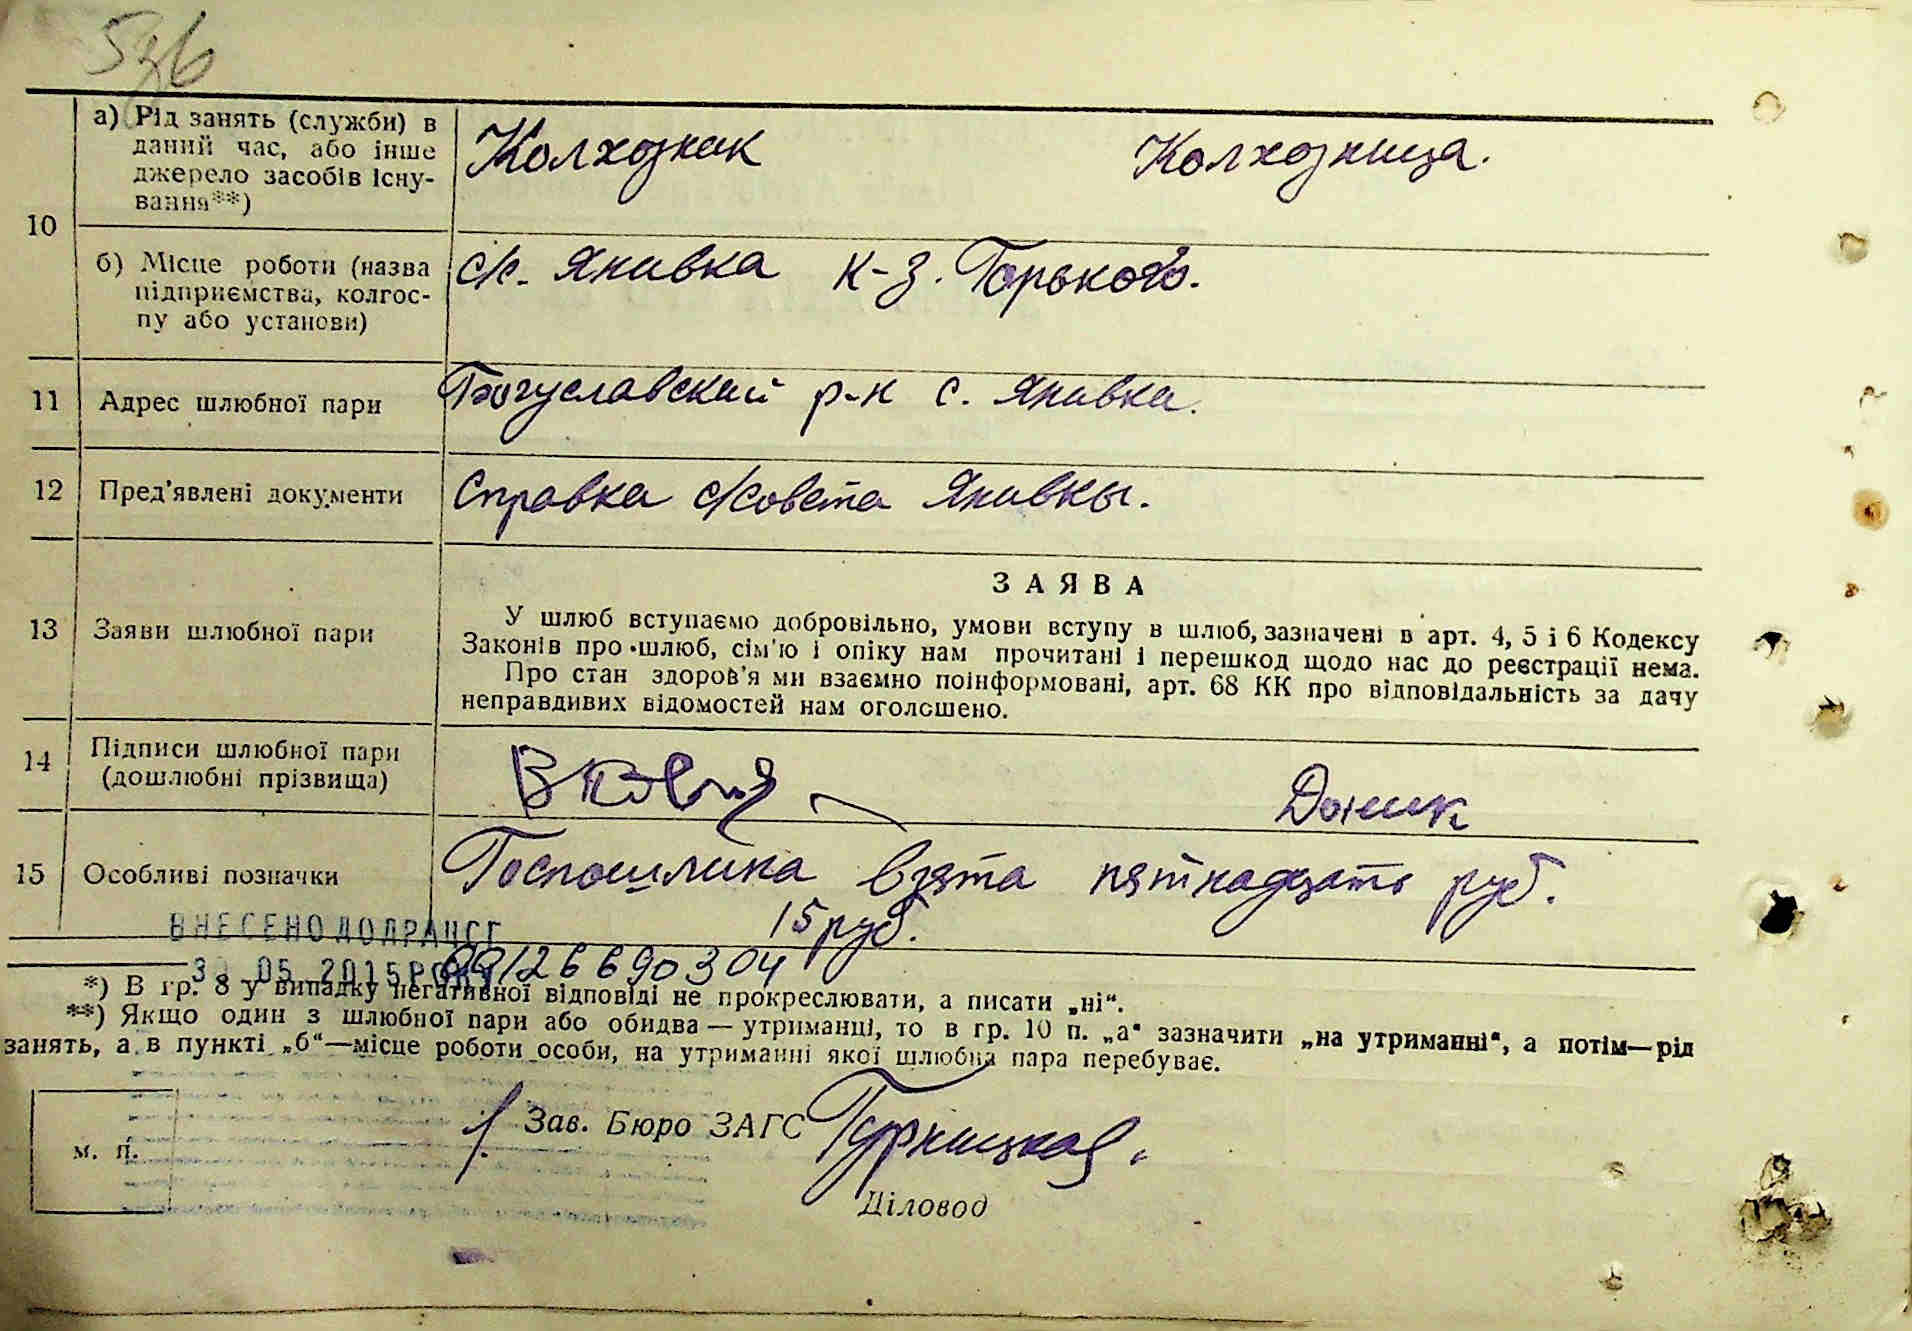 536
10
а) Рід занять (служби) в
даний час, або інше
джерело засобів існу-
вання**)
Колхозник Колхозница.
б) Місце роботи (назва
підприємства, колгос-
пу або установи)
с/с. Янивка к-з. Горького.
11 Адрес шлюбної пари Богуславский р-н с. Янивка.
12 Пред'явлені документи Справка с/совета Янивкы.
13 Заяви шлюбної пари
ЗАЯВА
У шлюб вступаємо добровільно, умови вступу в шлюб, зазначені в арт. 4, 5 і 6 Кодексу
Законів про шлюб, сім'ю і опіку нам прочитані і перешкод щодо нас до реєстрації нема.
Про стан здоров'я ми взаємно поінформовані, арт. 68 КК про відповідальність за дачу
неправдивих відомостей нам оголошено.
14 Підписи шлюбної пари
(дошлюбні прізвища)
Доник
15 Особливі позначки Госпошлина взята пятнадцать руб.
15 руб.
ВНЕСЕНО ДО ДРАЦСГ
05 2015 РОКУ
00126690304
*) В гр. 8 у випадку негативної відповіді не прокреслювати, а писати „ні“.
**) Якщо один з шлюбної пари або обидва — утриманці, то в гр. 10 п. „а“ зазначити „на утриманні“, а потім—рід
занять, а в пункті „б“—місце роботи особи, на утриманні якої шлюбна пара перебуває.
м. п.
Зав. Бюро ЗАГС
Діловод